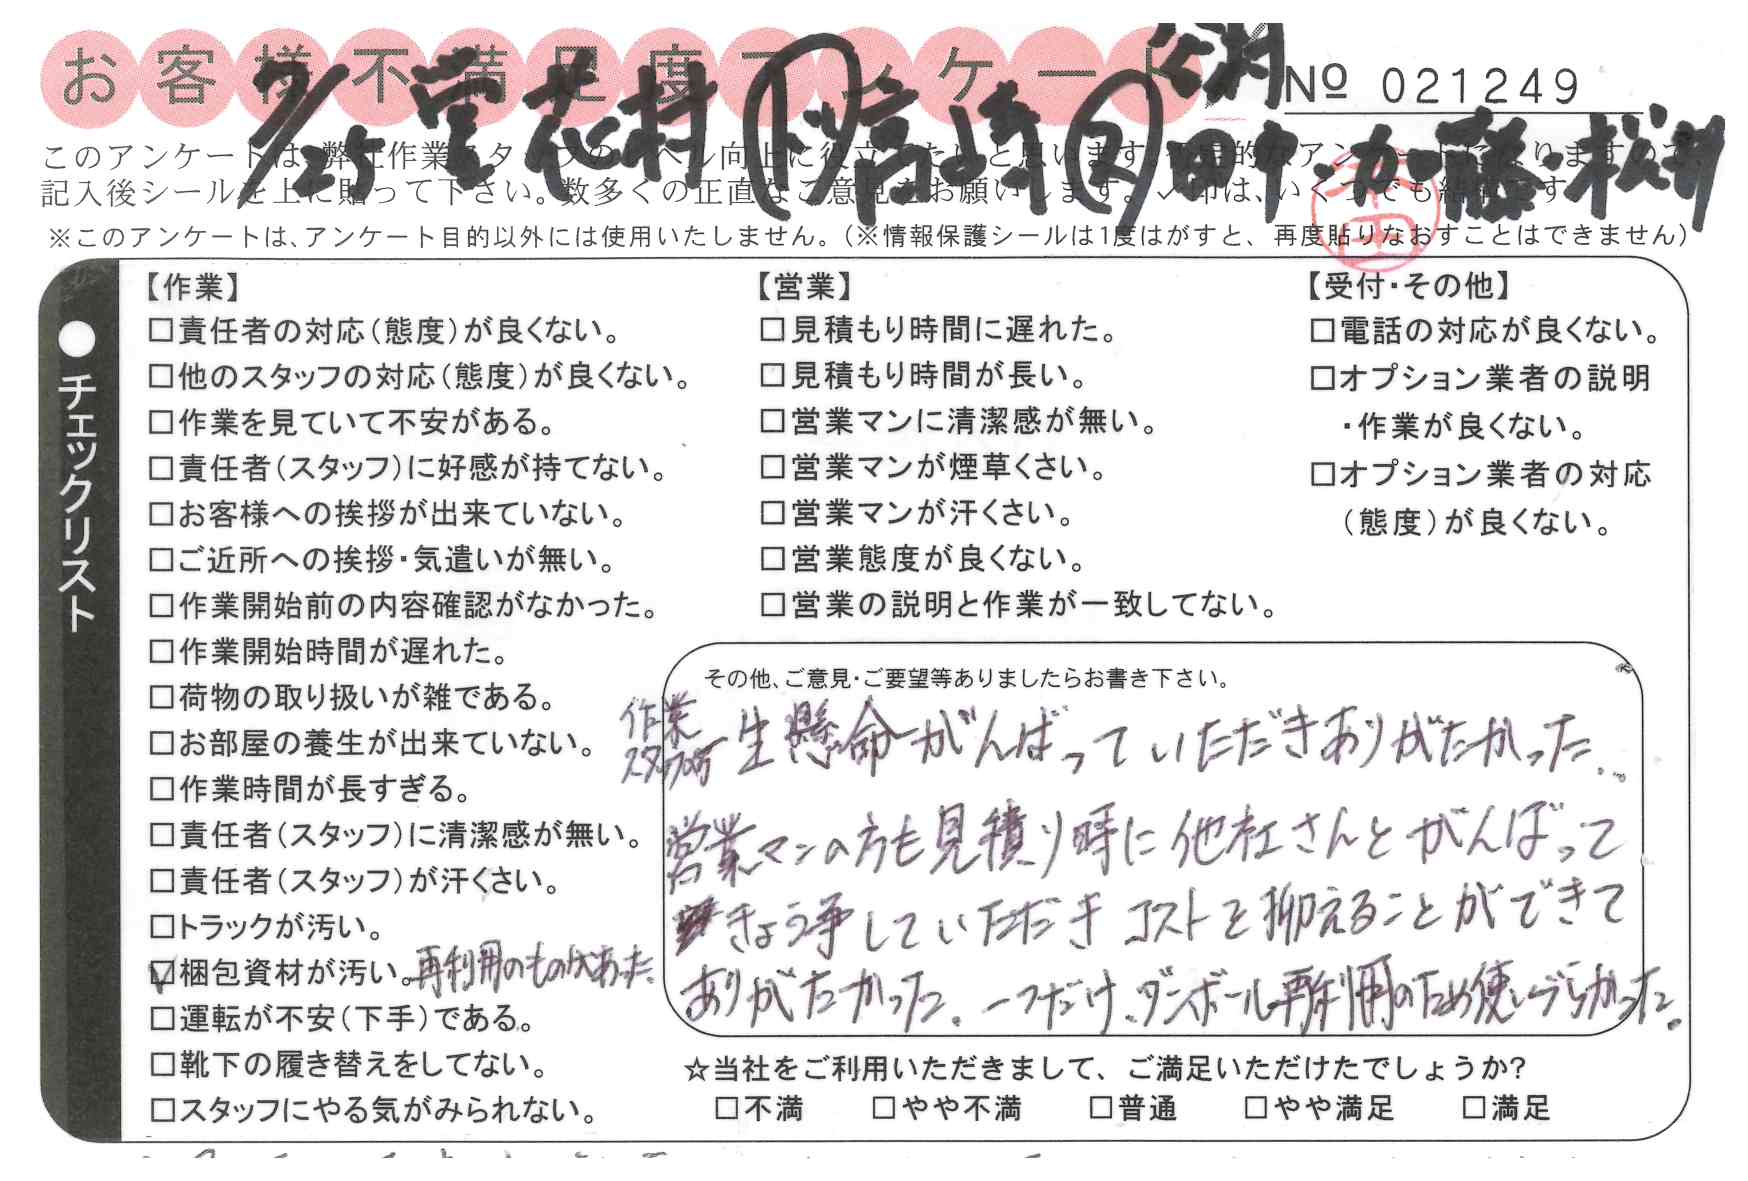 お客様不満足度アンケート
№ 021249
7/25 営 芯村 ト 高崎 田中・加藤・松村
このアンケートは、弊社作業スタッフのレベル向上に役立てたいと思います。
記入後シールを上に貼って下さい。数多くの正直なご意見をお願いします。✓印は、いくつでも結構です。
※このアンケートは、アンケート目的以外には使用いたしません。（※情報保護シールは1度はがすと、再度貼りなおすことはできません）
●チェックリスト
【作業】
□責任者の対応（態度）が良くない。
□他のスタッフの対応（態度）が良くない。
□作業を見ていて不安がある。
□責任者（スタッフ）に好感が持てない。
□お客様への挨拶が出来ていない。
□ご近所への挨拶・気遣いが無い。
□作業開始前の内容確認がなかった。
□作業開始時間が遅れた。
□荷物の取り扱いが雑である。
□お部屋の養生が出来ていない。
□作業時間が長すぎる。
□責任者（スタッフ）に清潔感が無い。
□責任者（スタッフ）が汗くさい。
□トラックが汚い。
☑梱包資材が汚い。再利用のものがあった。
□運転が不安（下手）である。
□靴下の履き替えをしてない。
□スタッフにやる気がみられない。
【営業】
□見積もり時間に遅れた。
□見積もり時間が長い。
□営業マンに清潔感が無い。
□営業マンが煙草くさい。
□営業マンが汗くさい。
□営業態度が良くない。
□営業の説明と作業が一致してない。
【受付・その他】
□電話の対応が良くない。
□オプション業者の説明
・作業が良くない。
□オプション業者の対応
（態度）が良くない。
その他、ご意見・ご要望等ありましたらお書き下さい。
作業
スタッフの方 一生懸命がんばっていただきありがたかった。
営業マンの方も見積り時に他社さんとがんばって
きょう争していただきコストを抑えることができて
ありがたかった。一つだけ、ダンボール再利用のため使いづらかった。
☆当社をご利用いただきまして、ご満足いただけたでしょうか？
□不満 □やや不満 □普通 □やや満足 □満足